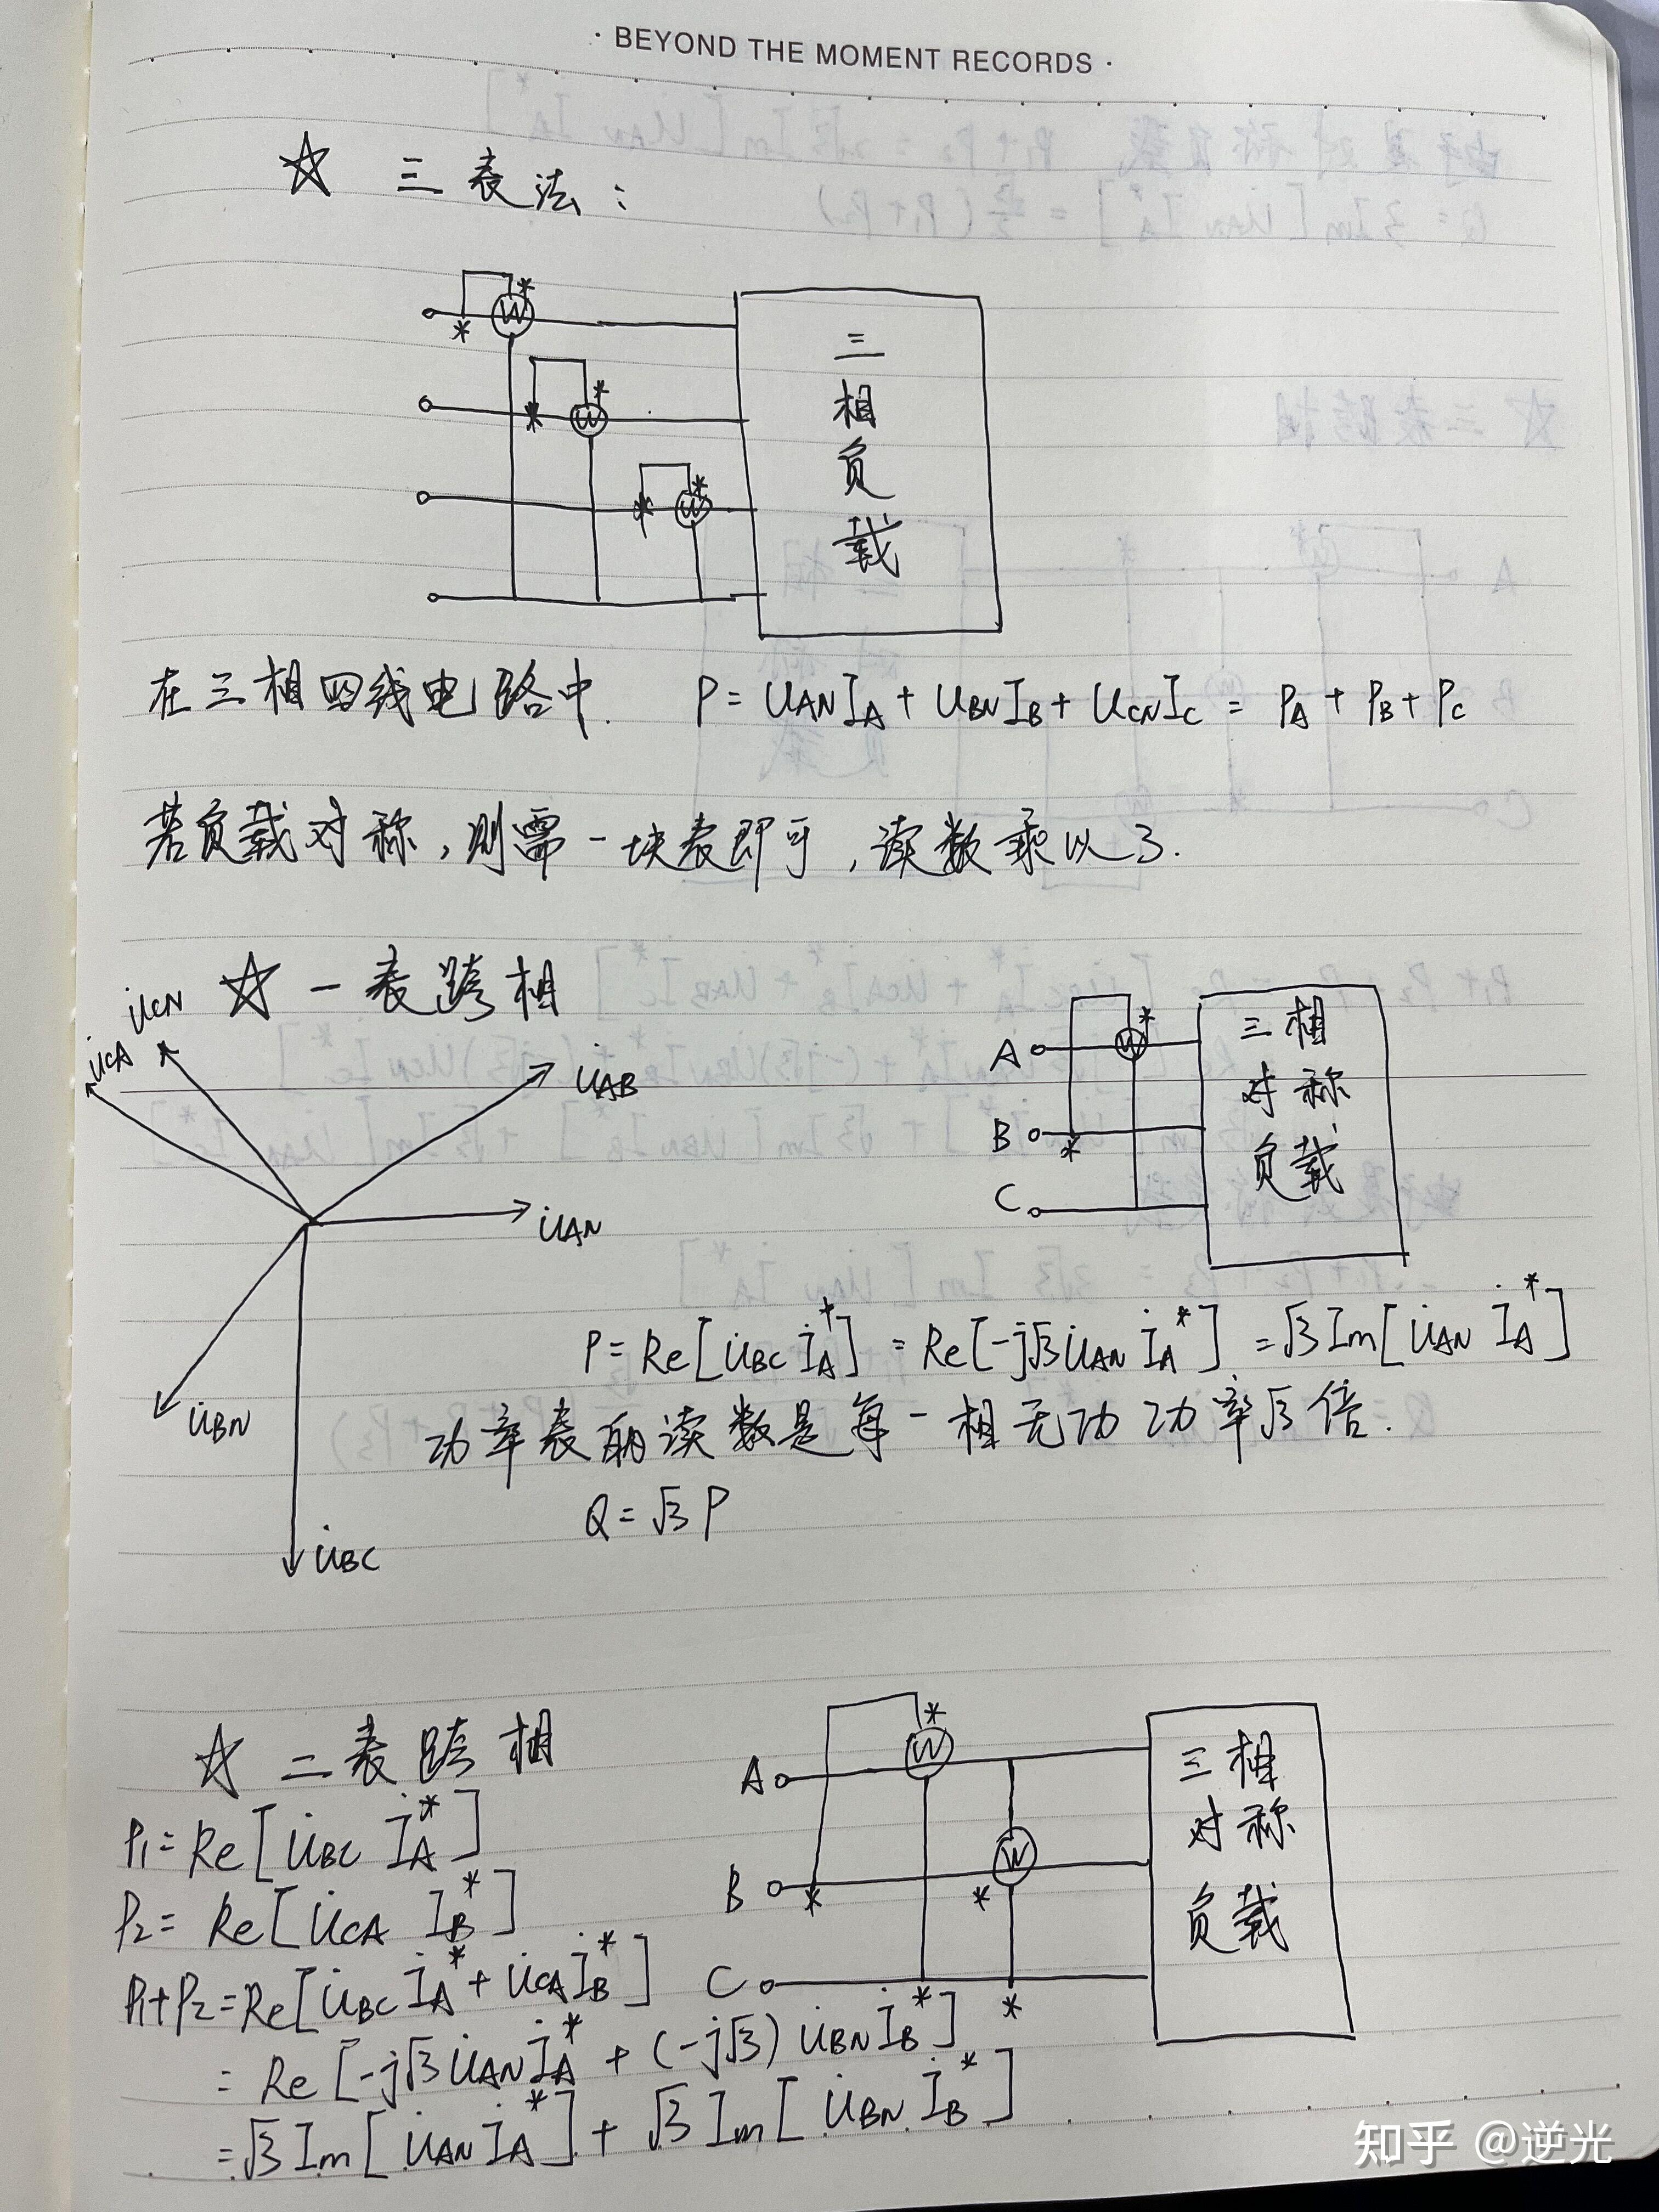 · BEYOND THE MOMENT RECORDS ·
☆ 三表法：
* W *
* W *
* W *
三相负载
在三相四线电路中. P = U_AN I_A + U_BN I_B + U_CN I_C = P_A + P_B + P_C
若负载对称，则需一块表即可，读数乘以3.
☆ 一表跨相
U̇_CN
U̇_CA
U̇_AB
U̇_AN
U̇_BN
U̇_BC
A W *
B *
C
三相对称负载
P = Re[U̇_BC İ_A*] = Re[-j√3 U̇_AN İ_A*] = √3 Im[U̇_AN İ_A*]
功率表的读数是每一相无功功率√3倍.
Q = √3 P
☆ 二表跨相
A W *
B * * W
C * *
三相对称负载
P₁ = Re[U̇_BC İ_A*]
P₂ = Re[U̇_CA İ_B*]
P₁+P₂ = Re[U̇_BC İ_A* + U̇_CA İ_B*]
= Re[-j√3 U̇_AN İ_A* + (-j√3) U̇_BN İ_B*]
= √3 Im[U̇_AN İ_A*] + √3 Im[U̇_BN İ_B*]
知乎 @逆光